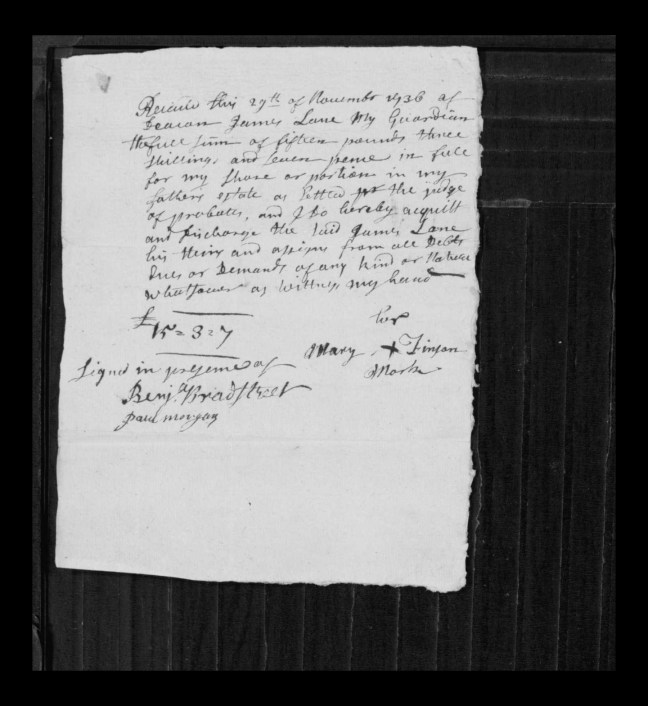 Receivd this 29th of Novembr 1736 of
Deacon James Lane My Guardian
the full sum of fifteen pounds three
shillings and seven pence in full
for my share or portion in my
fathers estate as settled pr the judge
of probates, and I do hereby acquitt
and Discharge the said James Lane
his Heirs and assigns from all Debts
dues or Demands of any kind or Nature
whatsoever as Wittness my hand
£15=3=7
her
Mary + Finson
Mark
Signed in presence of
Benja Bradstreet
paul morgan